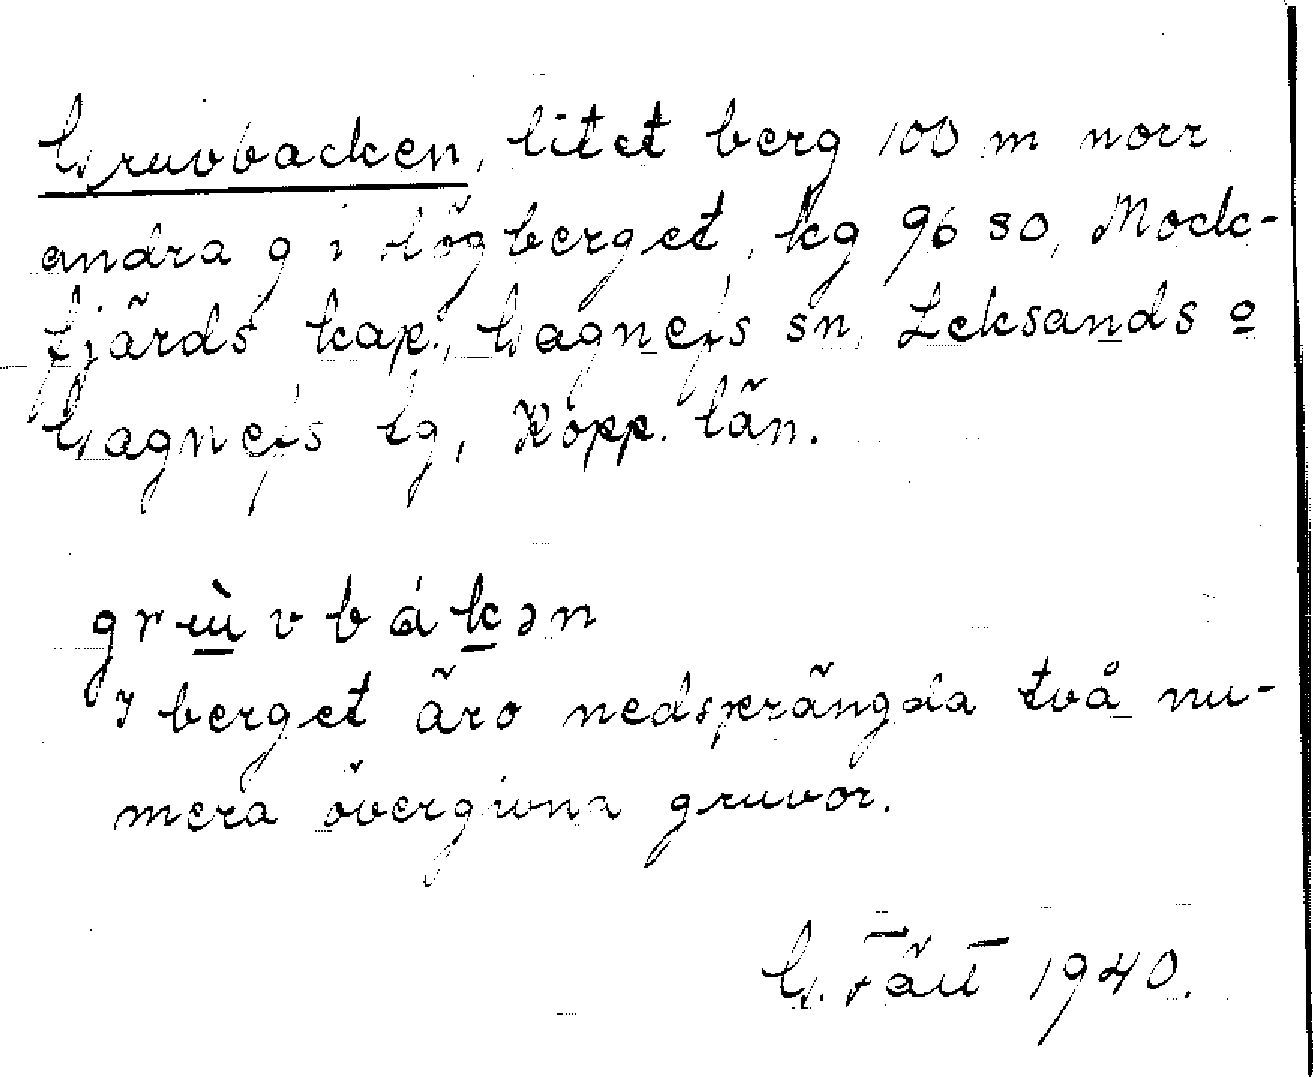 Gruvbacken, litet berg 100 m norr
andra g i högberget, kg 96 SO, Mock-
fjärds kap., Gagnefs sn, Leksands o
Gagnefs tg, Kopp. län.
grɯ̀vbákən
I berget äro nedsprängda två nu-
mera övergivna gruvor.
G. 1940.